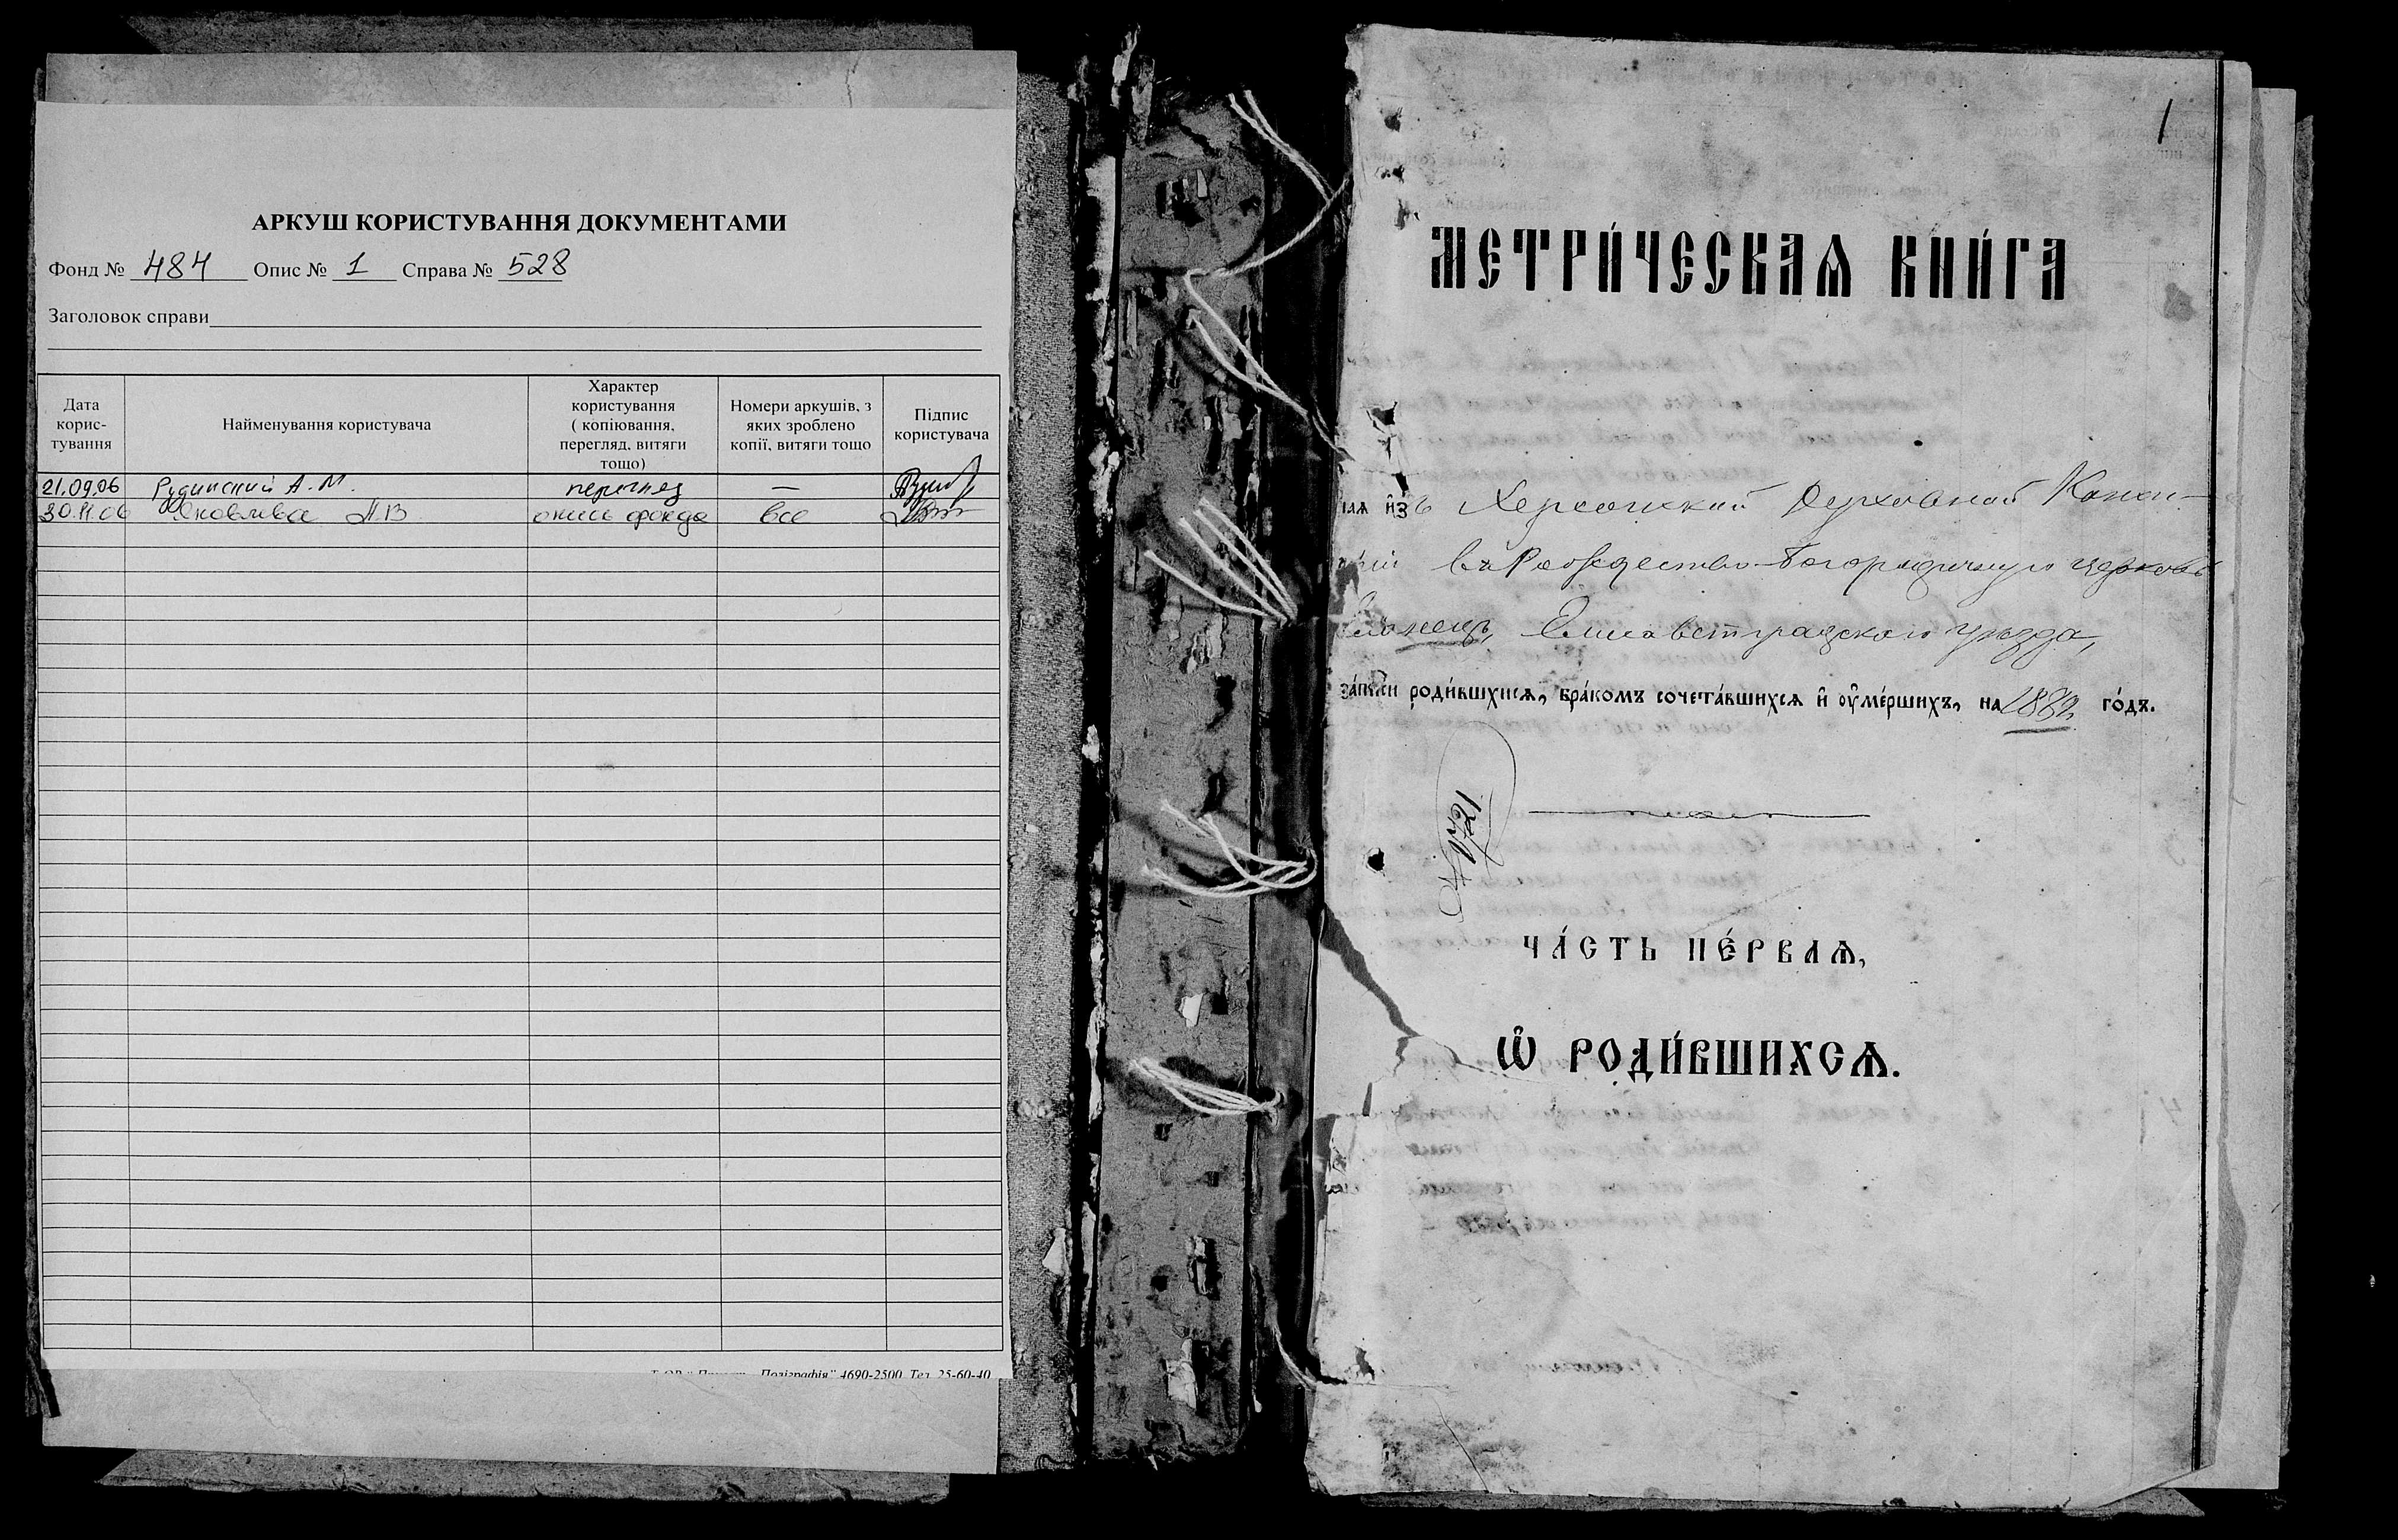 АРКУШ КОРИСТУВАННЯ ДОКУМЕНТАМИ
Фонд № 484 Опис № 1 Справа № 528
Заголовок справи
Дата корис-тування
Найменування користувача
Характер користування ( копіювання, перегляд, витяги тощо)
Номери аркушів, з яких зроблено копії, витяги тощо
Підпис користувача
21.09.06 Рудинский А. М. перегляд —
30.11.06 Яковлева Л.В опись фонда все
Поліграфія" 4690-2500 Тел. 25-60-40
1
МЕТРИ́ЧЕСКАѦ КНИ́ГА
изъ Херсонский Духовной Конси-
въ Рождество-Богородичную церковь
Елисаветградского уезда,
за́писи роди́вшихсѧ, бра́комъ сочета́вшихсѧ и оуме́ршихъ, на 1882 го́дъ.
№ 1721
ЧА́СТЬ ПЕ́РВАѦ,
Ѡ РОДИ́ВШИХСѦ.